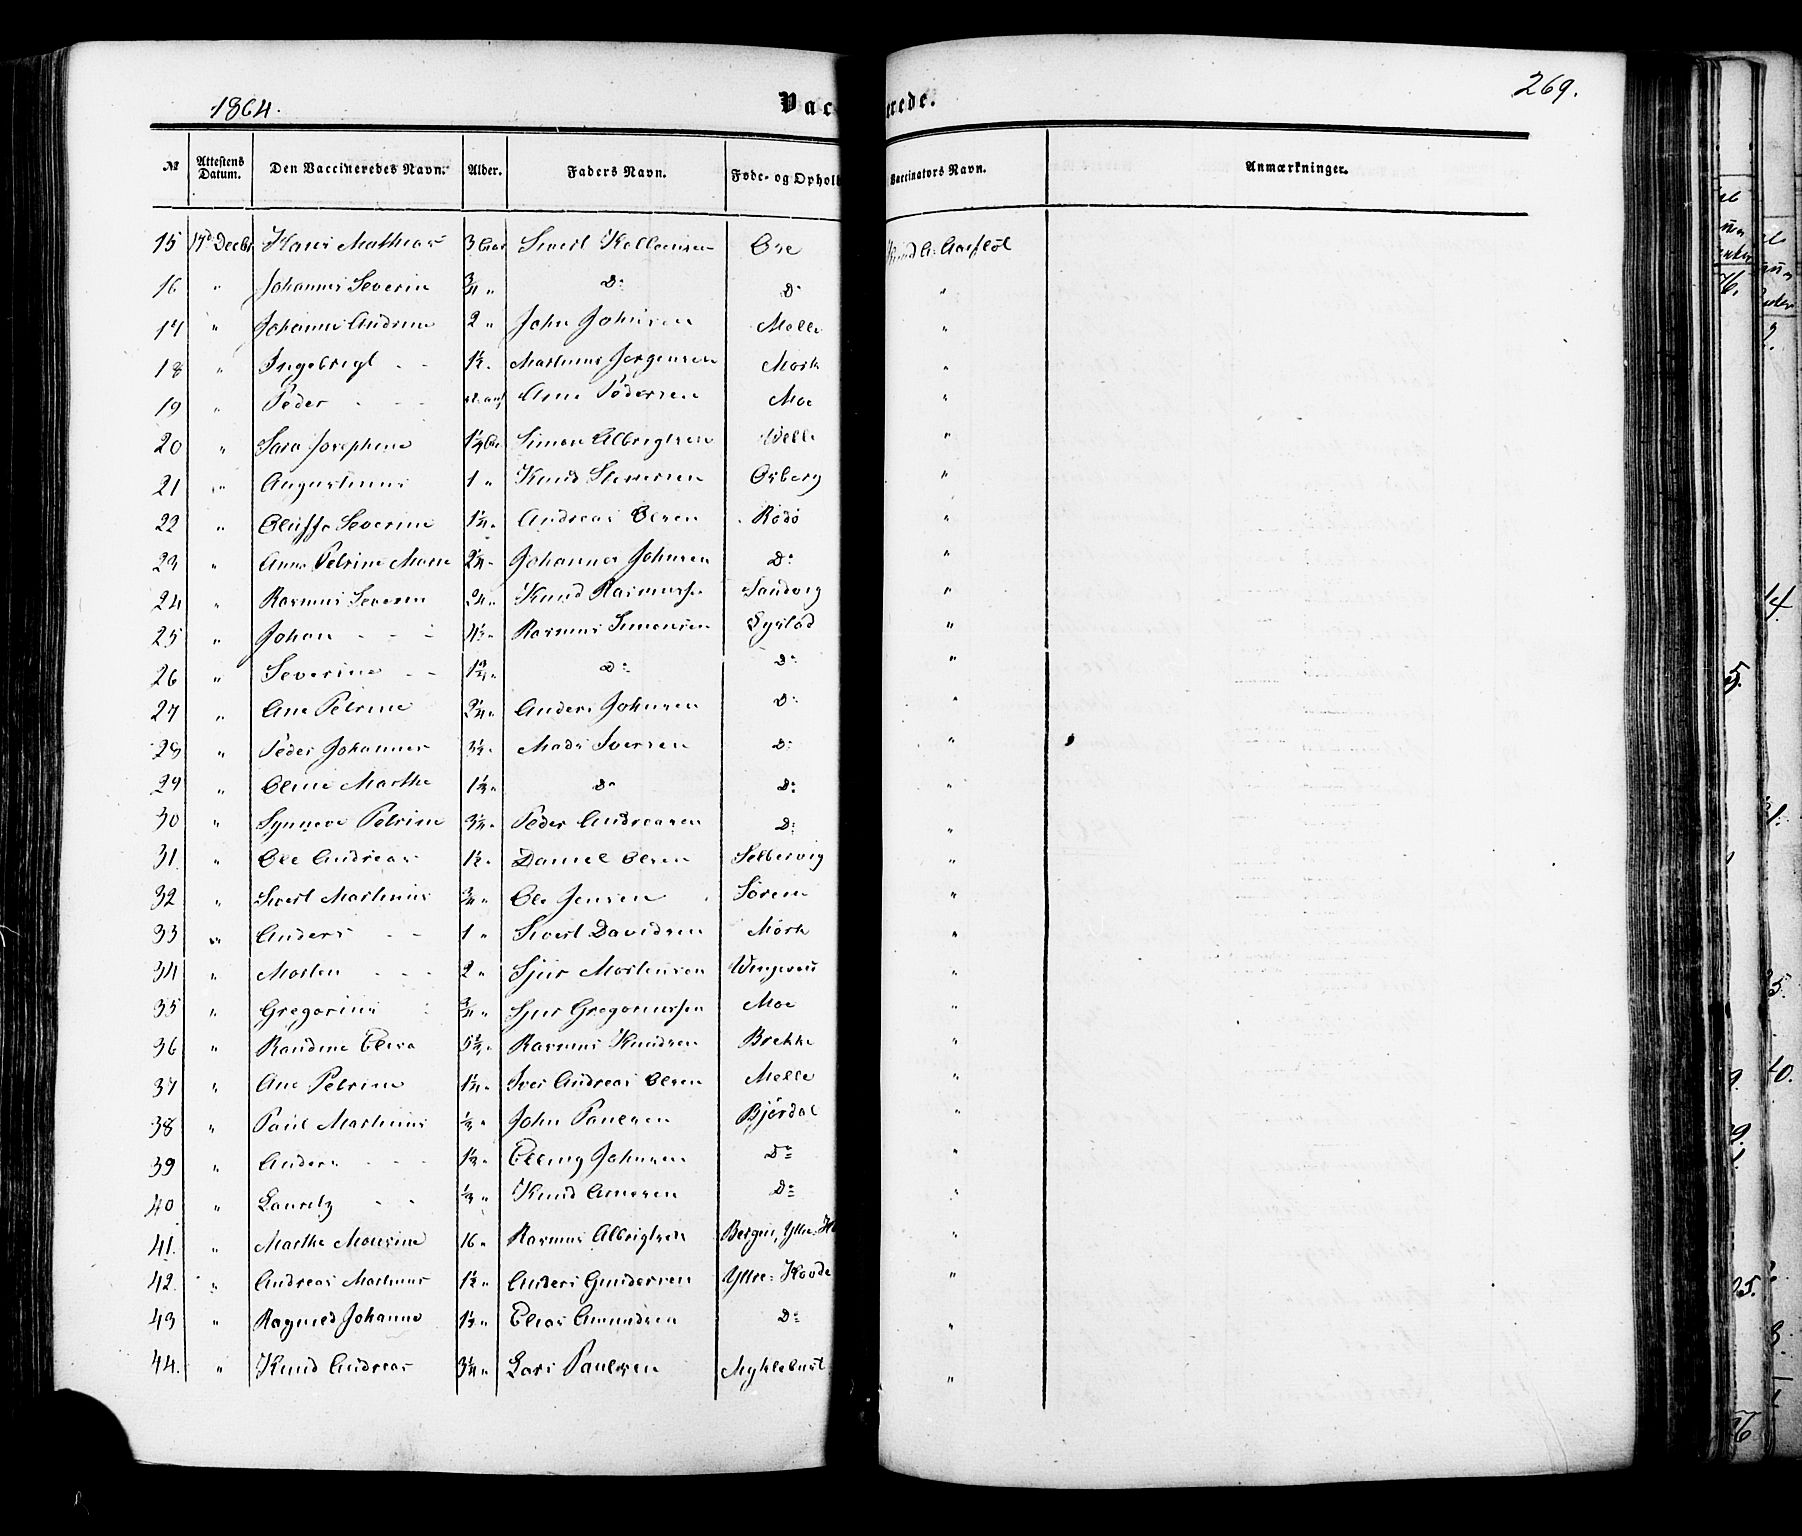 1864.
Vac erede.
269.
№ Attestens Datum. Den Vaccineredes Navn. Alder. Faders Navn. Føde- og Ophol Vaccinators Navn. Anmærkninger.
15 17d. Decbr Hans Mathias 3 Sivert Øre
16 " Johannes Severin 3/4 " Do Do "
17 " Johanne Andrine 2 " John Johnsen Melle "
18 " Ingebrigt - - 1½ " Martinus Jørgensen Mork "
19 " Peder - - - Arne Pedersen Moe "
20 " Sara Josephine Simon Albrigtsen Welle "
21 " Augustinus 1 " Knud Osberg "
22 " Oluffe Severine 1¼ " Andreas Olsen Rødø "
23 " Anne Petrine Marie 2¼ " Johannes Johnsen Do "
24 " Rasmus Severin Knud Rasmussen Sandvig "
25 " Johan - - - 4½ " Rasmus Simonsen "
26 " Severine - - Do Do "
27 " Ane Petrine 2¼ " Anders Johnsen Do "
28 " Peder Johannes 3½ " Mads Iversen Do "
29 " Oline Marthe 1½ " Do Do "
30 " Synneve Petrine 3¼ " Peder Andreasen Do "
31. " Ole Andreas 1½ " Daniel Olsen Selbervig "
32 " Sivert Martinus 3/4 " Ole Jensen Sørem "
33 " Anders - - 1 " Sivert Davidsen Mørk "
34 " Morten - - - 2 " Sjur Mortensen "
35 " Gregorius 3/4 " Sjur Gregoriussen Moe "
36 " Randine Elisa 5½ " Rasmus Knudsen Brekke "
37 " Ane Petrine 1¼ " Iver Andreas Olsen Melle "
38 " Paul Martinus ½ " John Paulsen Bjørdal "
39 " Anders - - - 1½ " Elling Johnsen Do "
40 " Lauritz - - ½ " Knud Do "
41. " Marthe 16 " Rasmus Albrigtsen Bergen, Yttre- "
42. " Andreas Martinus 1½ " Anders Gundersen Yttre- Hovde "
43 " Ragnild Johanne 1½ " Elias Amundsen Do "
44. " Knud Andreas 3¼ " Lars Paulsen Myklebust "